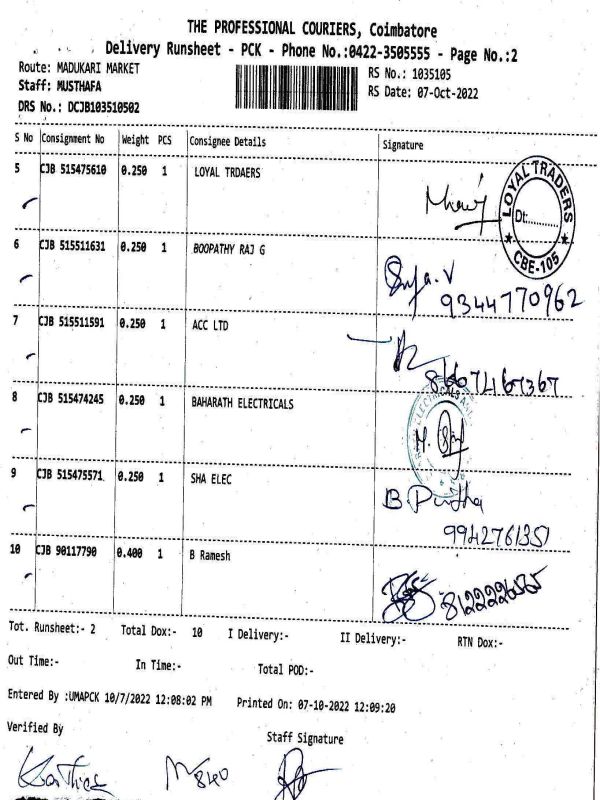 THE PROFESSIONAL COURIERS, Coimbatore
Delivery Runsheet - PCK - Phone No.:0422-3505555 - Page No.:2
Route: MADUKARI MARKET
RS No.: 1035105
Staff: MUSTHAFA
RS Date: 07-Oct-2022
DRS No.: DCJB103510502
S No Consignment No Weight PCS Consignee Details Signature
5 CJB 515475610 0.250 1 LOYAL TRDAERS
LOYAL TRADERS
Dt:..........
CBE-105
6 CJB 515511631 0.250 1 BOOPATHY RAJ G
9344770962
7 CJB 515511591 0.250 1 ACC LTD
8667467367
8 CJB 515474245 0.250 1 BAHARATH ELECTRICALS
9 CJB 515475571 0.250 1 SHA ELEC
994276135)
10 CJB 90117790 0.400 1 B Ramesh
Tot. Runsheet:- 2 Total Dox:- 10 I Delivery:- II Delivery:- RTN Dox:-
Out Time:- In Time:- Total POD:-
Entered By :UMAPCK 10/7/2022 12:08:02 PM Printed On: 07-10-2022 12:09:20
Verified By
Staff Signature